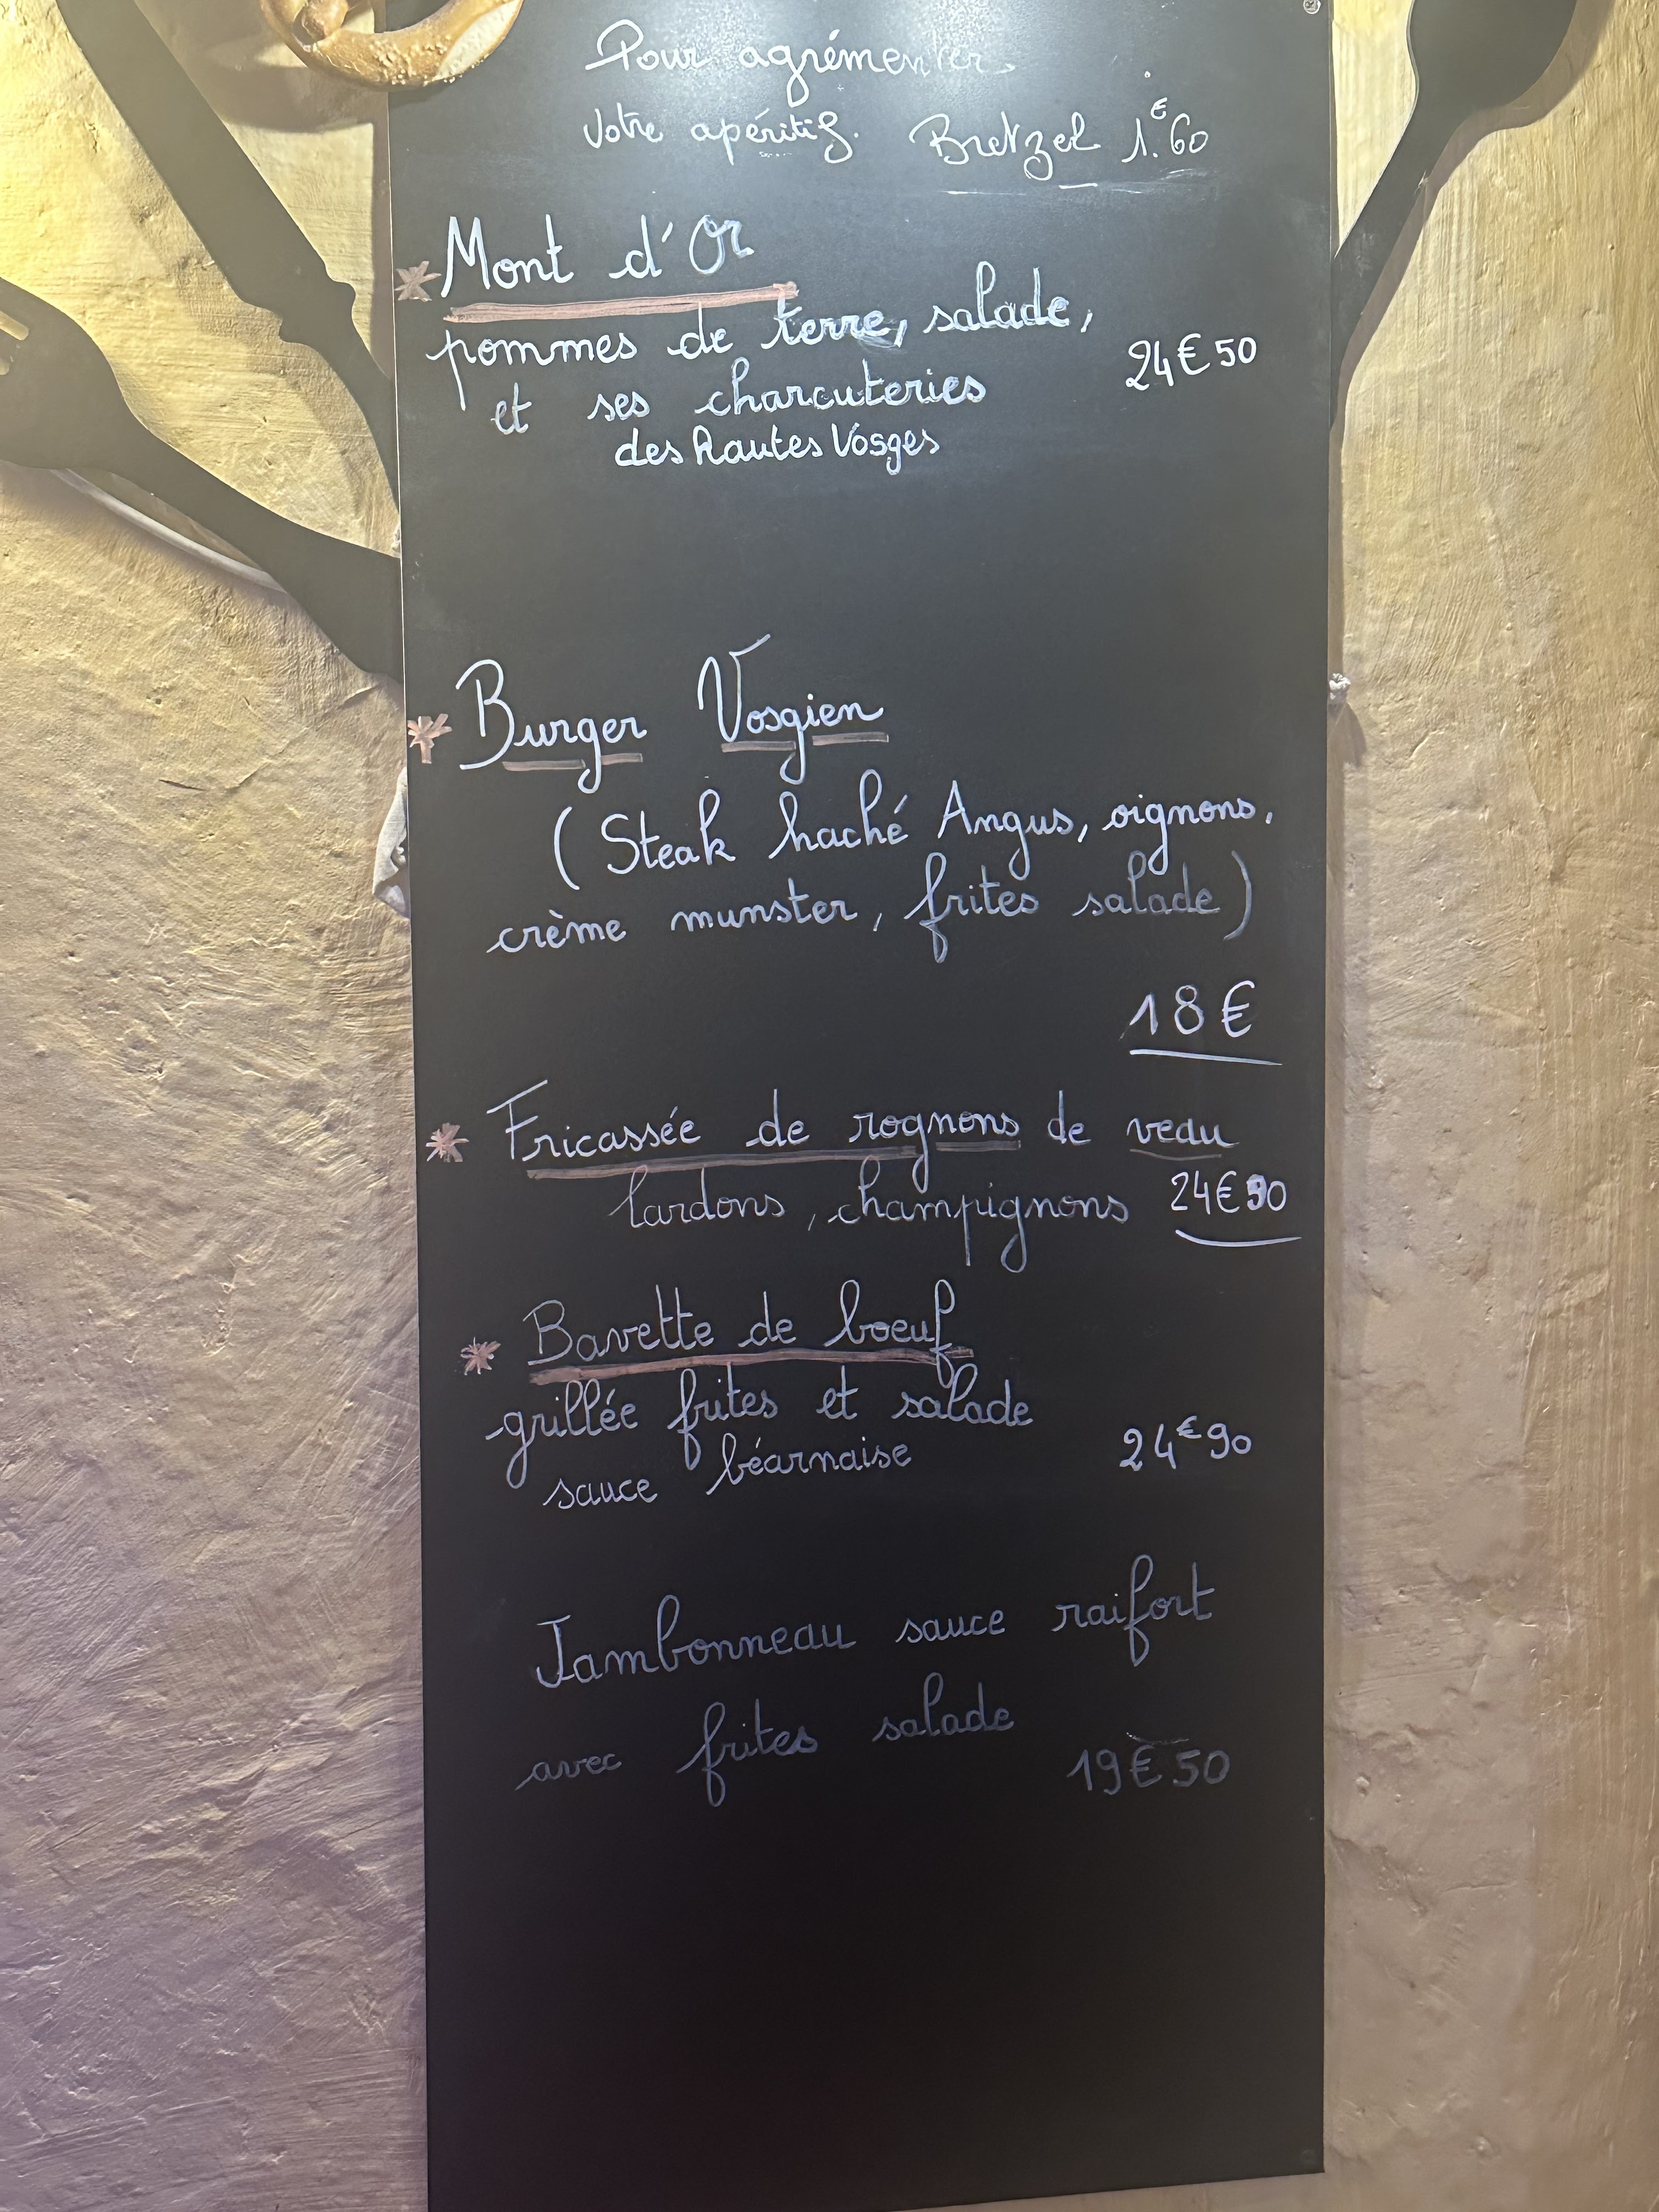 Pour agrémenter
votre apéritif. Bretzel 1.€60
* Mont d'Or
pommes de terre, salade,
24€50
et ses charcuteries
des Hautes Vosges
* Burger Vosgien
( Steak haché Angus, oignons,
crème munster, frites salade )
18€
* Fricassée de rognons de veau
lardons, champignons 24€90
* Bavette de boeuf
grillée frites et salade
sauce béarnaise 24€90
Jambonneau sauce raifort
avec frites salade
19€50